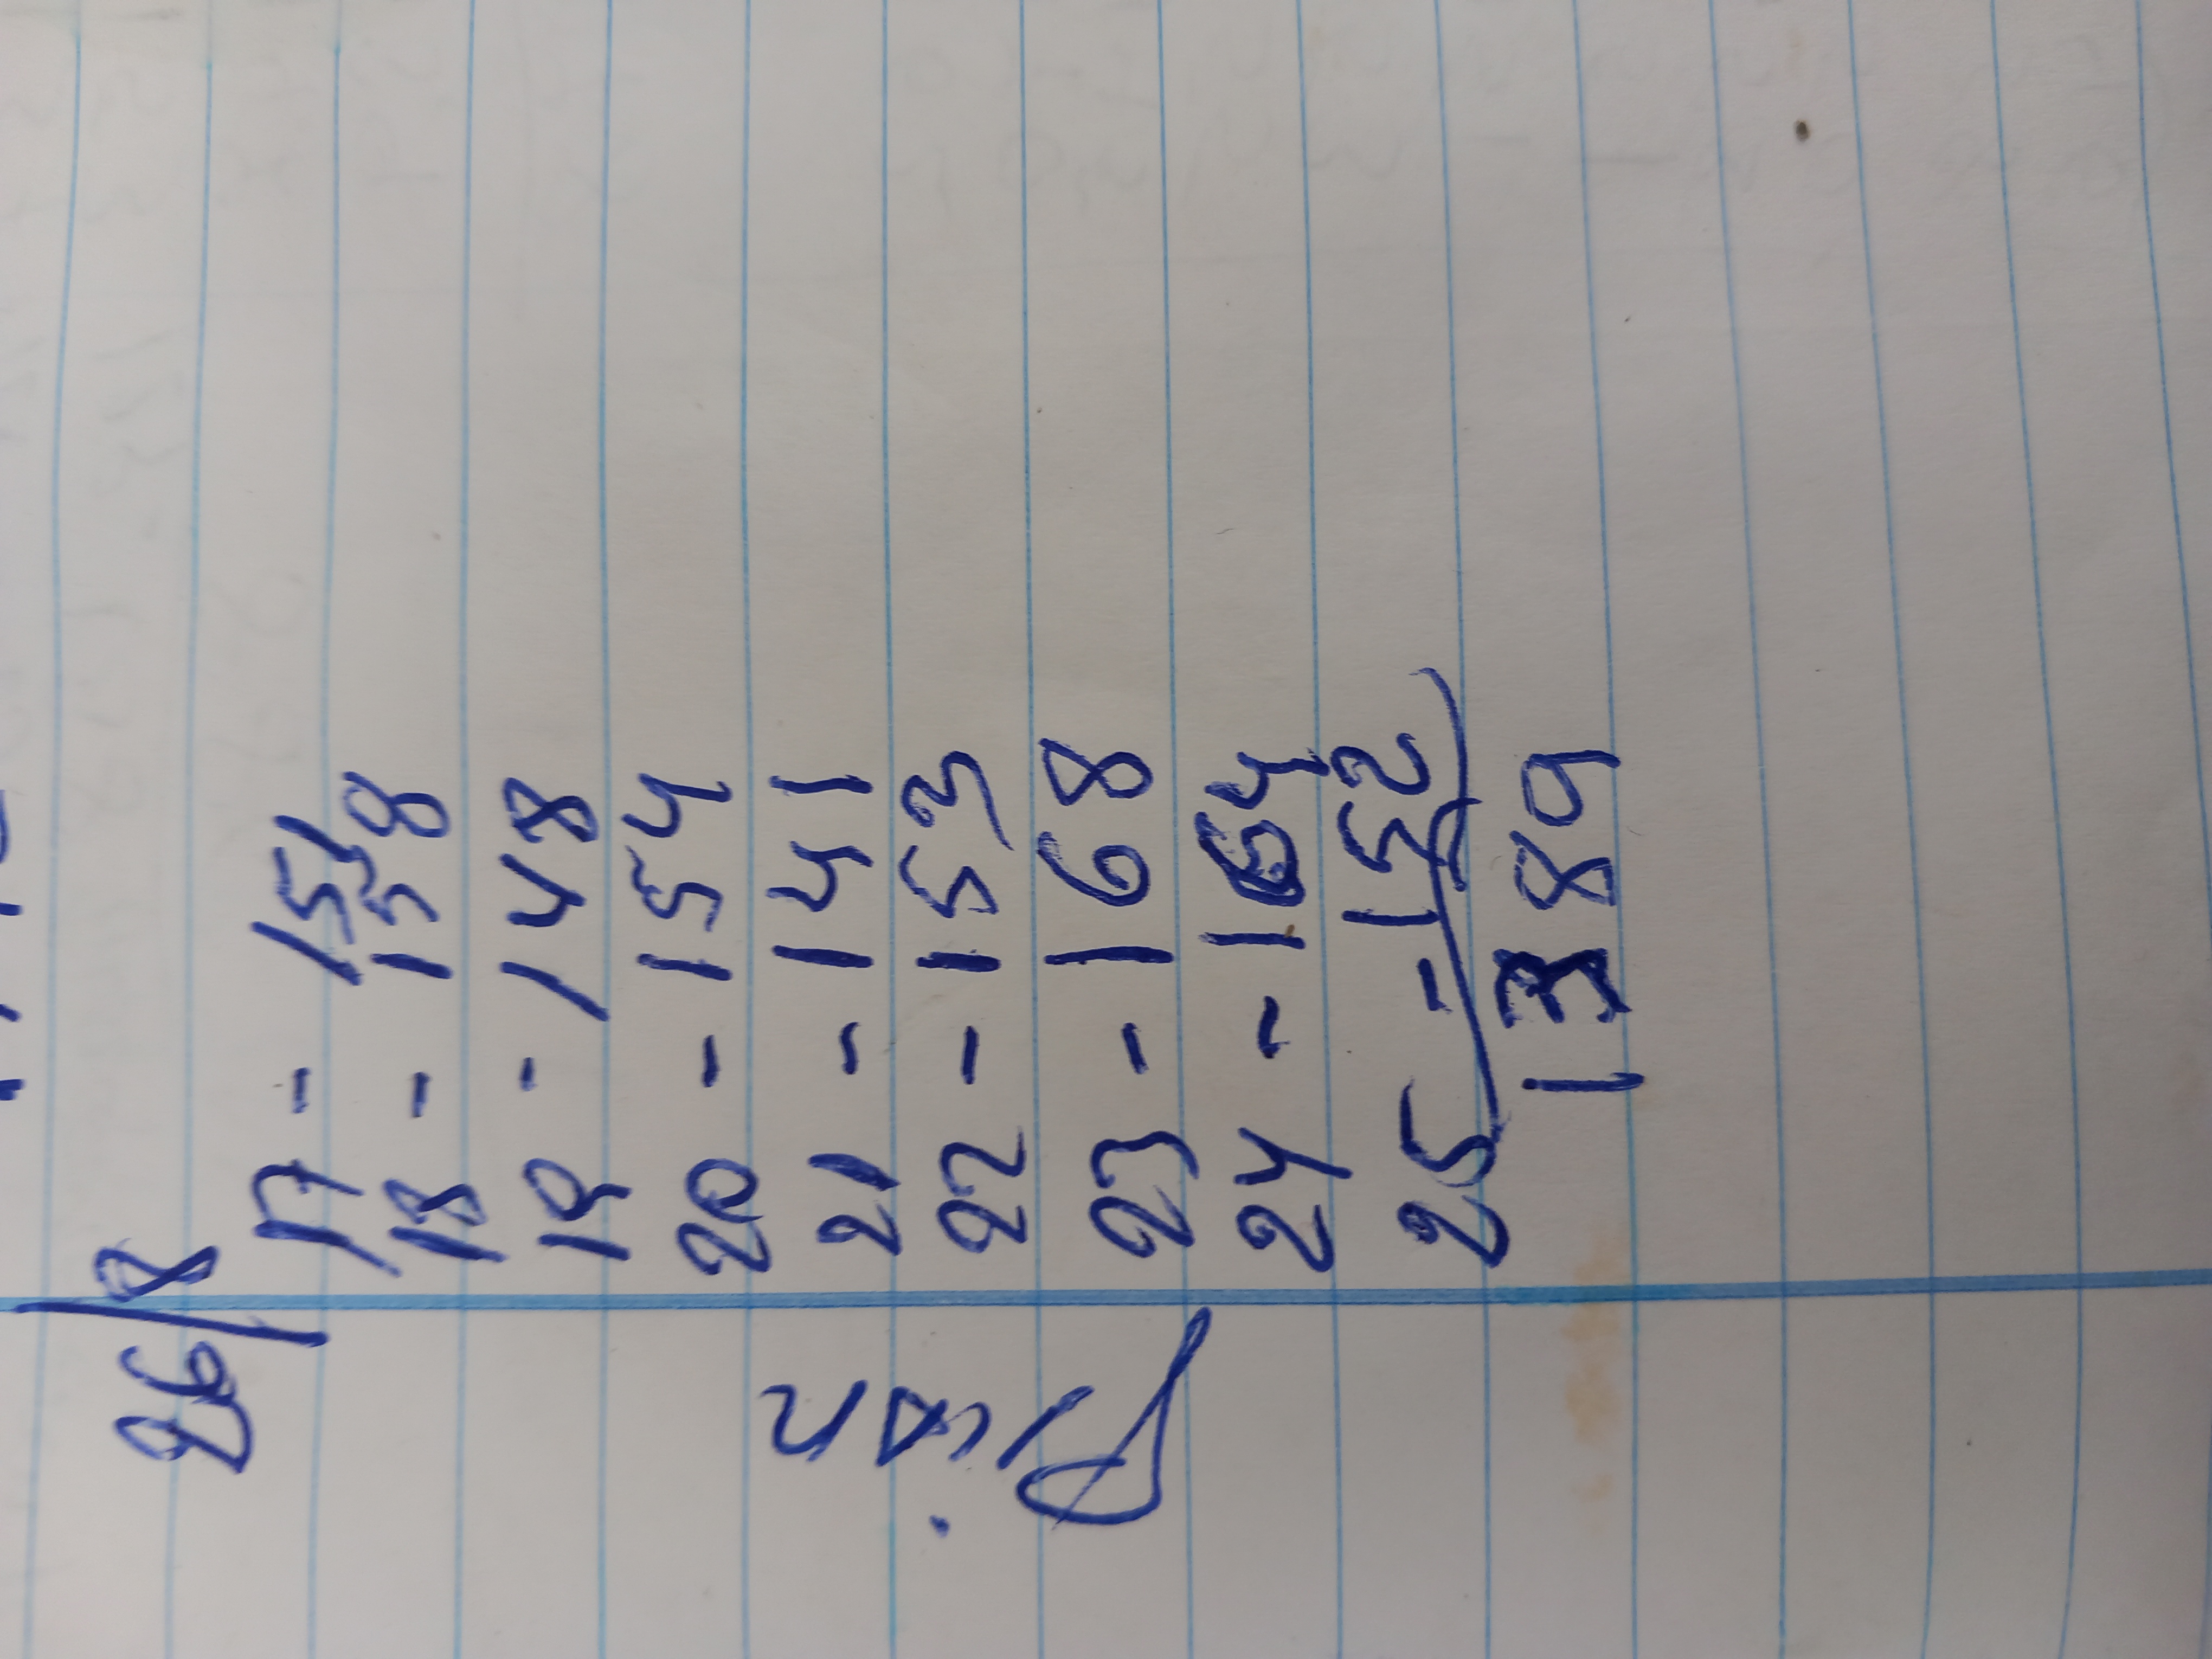 26/8
17 - 151
18 - 158
19 - 148
20 - 154
21 - 141
22 - 153
23 - 168
24 - 164
25 - 152
1389